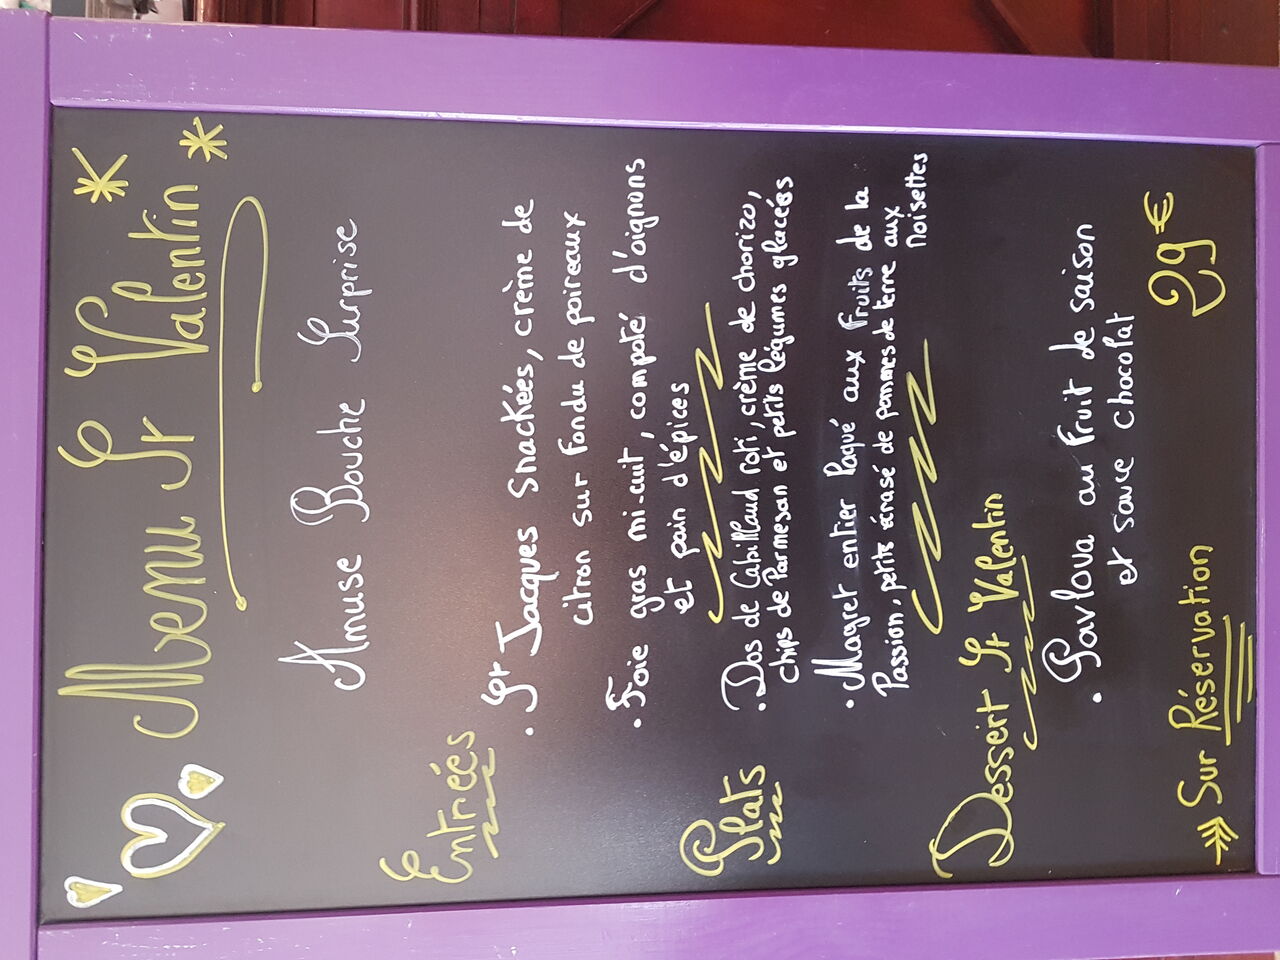 Menu St Valentin
Amuse Bouche Surprise
Entrées
• St Jacques Snackées, crème de
citron sur fondu de poireaux
• Foie gras mi-cuit, compoté d'oignons
et pain d'épices
Plats
• Dos de Cabillaud roti, crème de chorizo,
chips de Parmesan et petits légumes glacées
• Magret entier laqué aux Fruits de la
Passion, petite écrasé de pommes de terre aux
Noisettes
Dessert St Valentin
• Pavlova au Fruit de saison
et sauce chocolat
Sur Réservation 29€